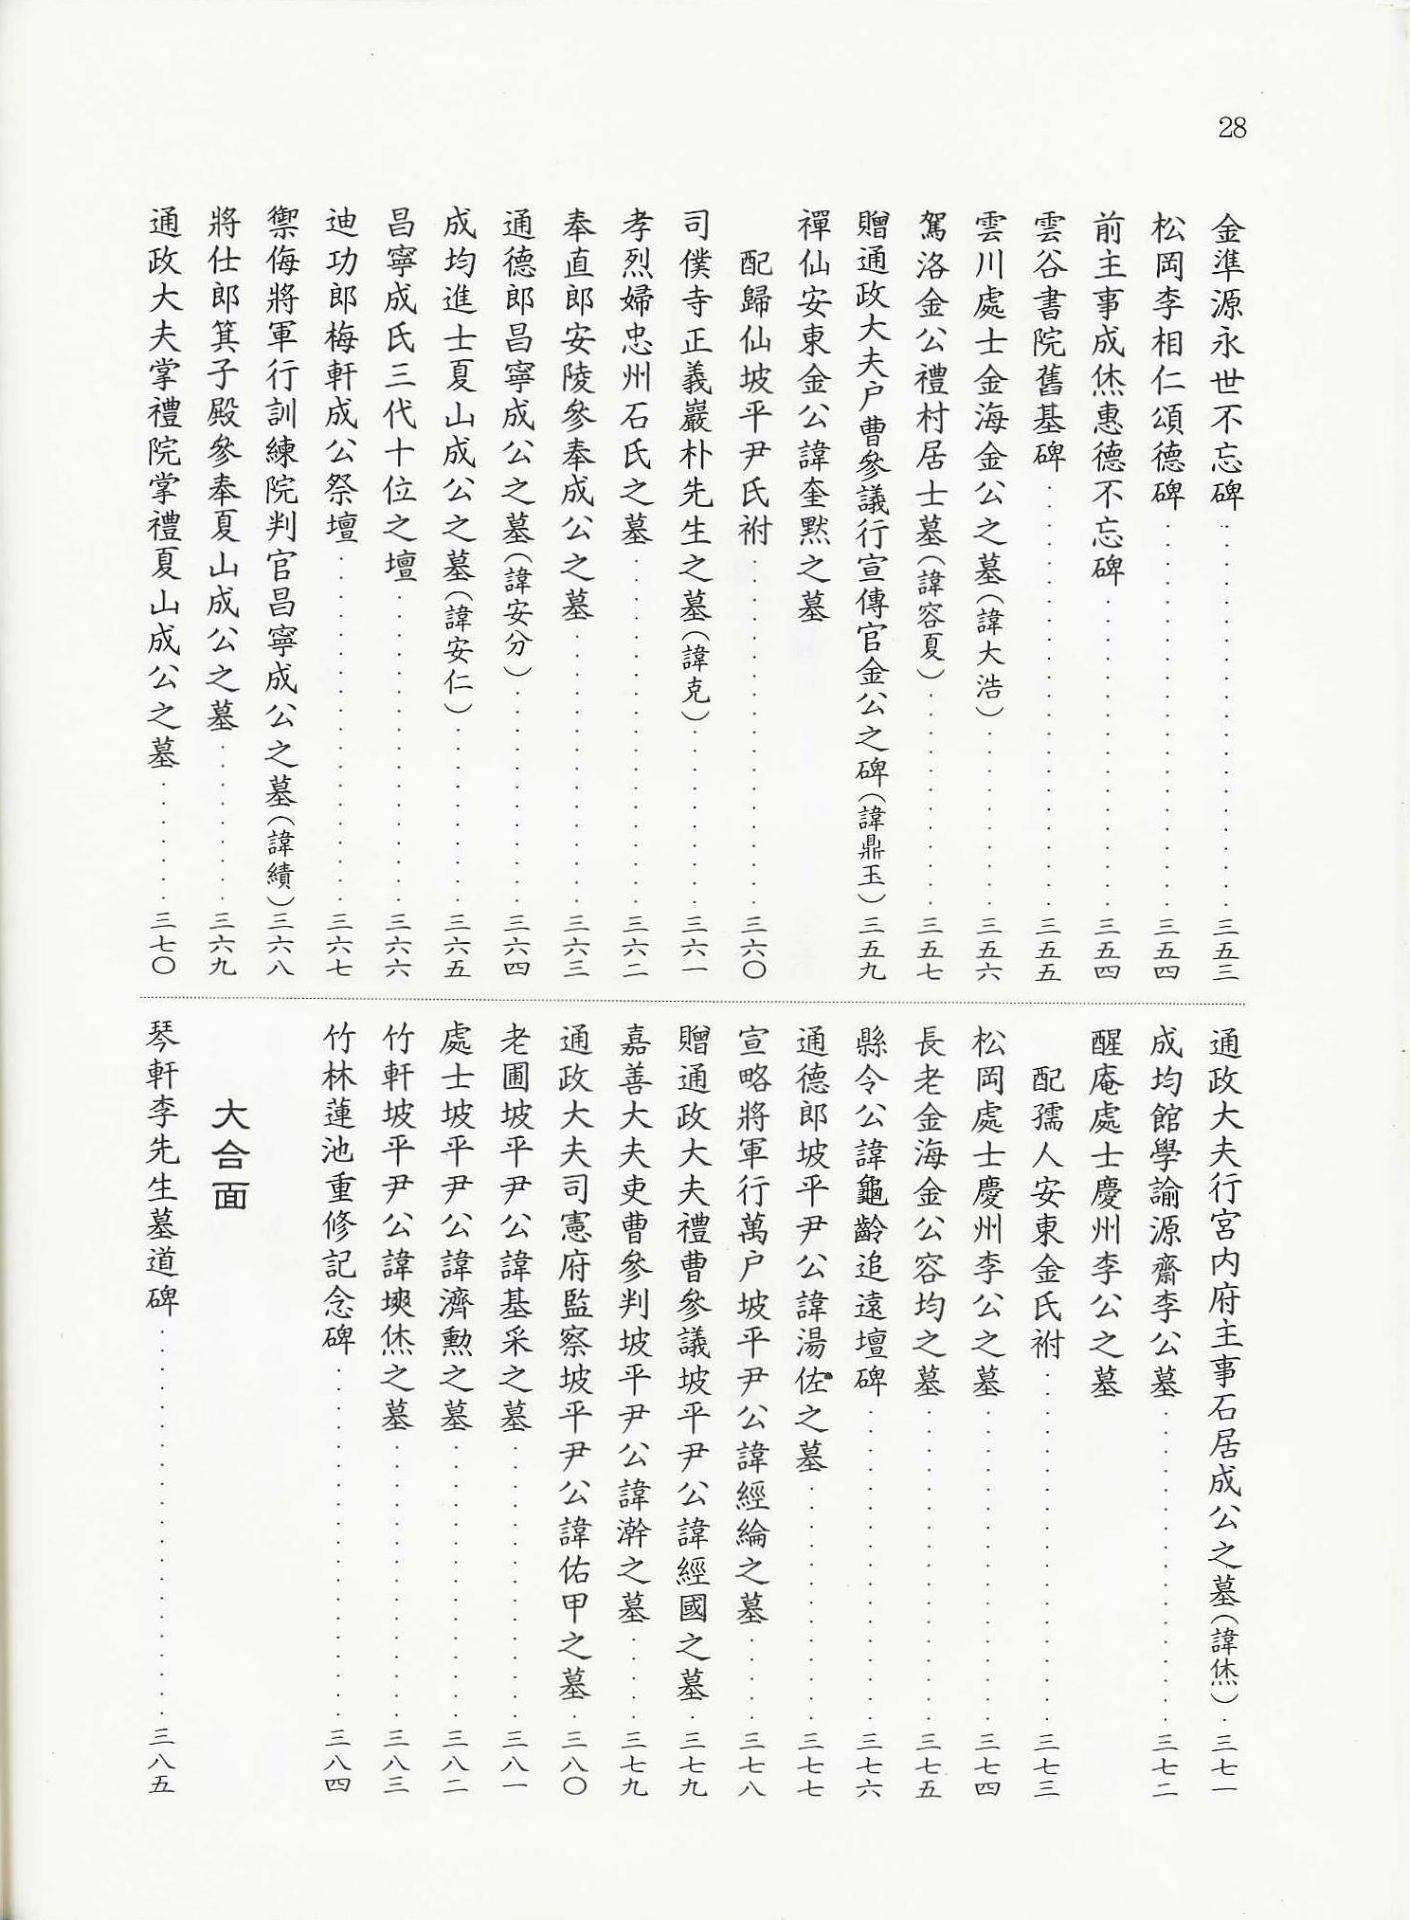 28
金準源永世不忘碑 三五三
松岡李相仁頌德碑 三五四
前主事成烋惠德不忘碑 三五四
雲谷書院舊基碑 三五五
雲川處士金海金公之墓(諱大浩) 三五六
駕洛金公禮村居士墓(諱容夏) 三五七
贈通政大夫户曹參議行宣傳官金公之碑(諱鼎玉) 三五九
禪仙安東金公諱奎黙之墓
配歸仙坡平尹氏祔 三六〇
司僕寺正義巖朴先生之墓(諱克) 三六一
孝烈婦忠州石氏之墓 三六二
奉直郎安陵參奉成公之墓 三六三
通德郎昌寧成公之墓(諱安分) 三六四
成均進士夏山成公之墓(諱安仁) 三六五
昌寧成氏三代十位之壇 三六六
迪功郎梅軒成公祭壇 三六七
禦侮將軍行訓練院判官昌寧成公之墓(諱績) 三六八
將仕郎箕子殿參奉夏山成公之墓 三六九
通政大夫掌禮院掌禮夏山成公之墓 三七〇
通政大夫行宮内府主事石居成公之墓(諱烋) 三七一
成均館學諭源齋李公墓 三七二
醒庵處士慶州李公之墓
配孺人安東金氏祔 三七三
松岡處士慶州李公之墓 三七四
長老金海金公容均之墓 三七五
縣令公諱龜齡追遠壇碑 三七六
通德郎坡平尹公諱湯佐之墓 三七七
宣略將軍行萬户坡平尹公諱經綸之墓 三七八
贈通政大夫禮曹參議坡平尹公諱經國之墓 三七九
嘉善大夫吏曹參判坡平尹公諱澣之墓 三七九
通政大夫司憲府監察坡平尹公諱佑甲之墓 三八〇
老圃坡平尹公諱基采之墓 三八一
處士坡平尹公諱濟勳之墓 三八二
竹軒坡平尹公諱烋之墓 三八三
竹林蓮池重修記念碑 三八四
大合面
琴軒李先生墓道碑 三八五